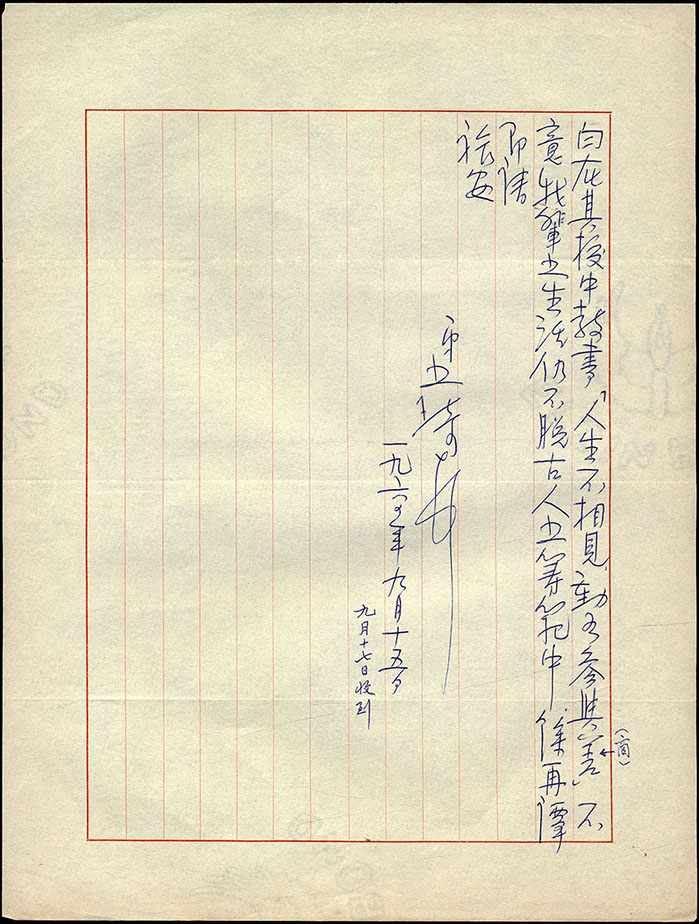 白在其校中教書「人生不相見,動如參與善不
(商)
意我輩之生活仍不脫古人之籌範中 餘再譚
即請
旅安
弟之琦
一九六五年九月十五日
九月十七日收到